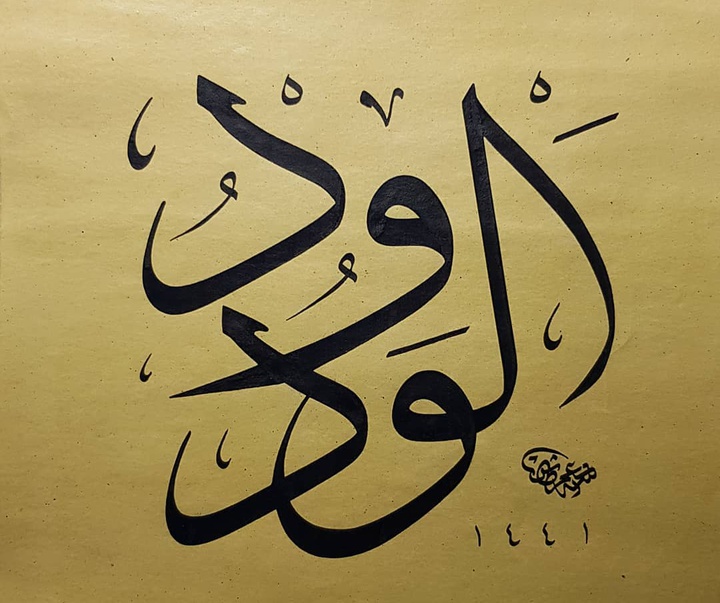 اَلْوَدُودُ
١٤٤١